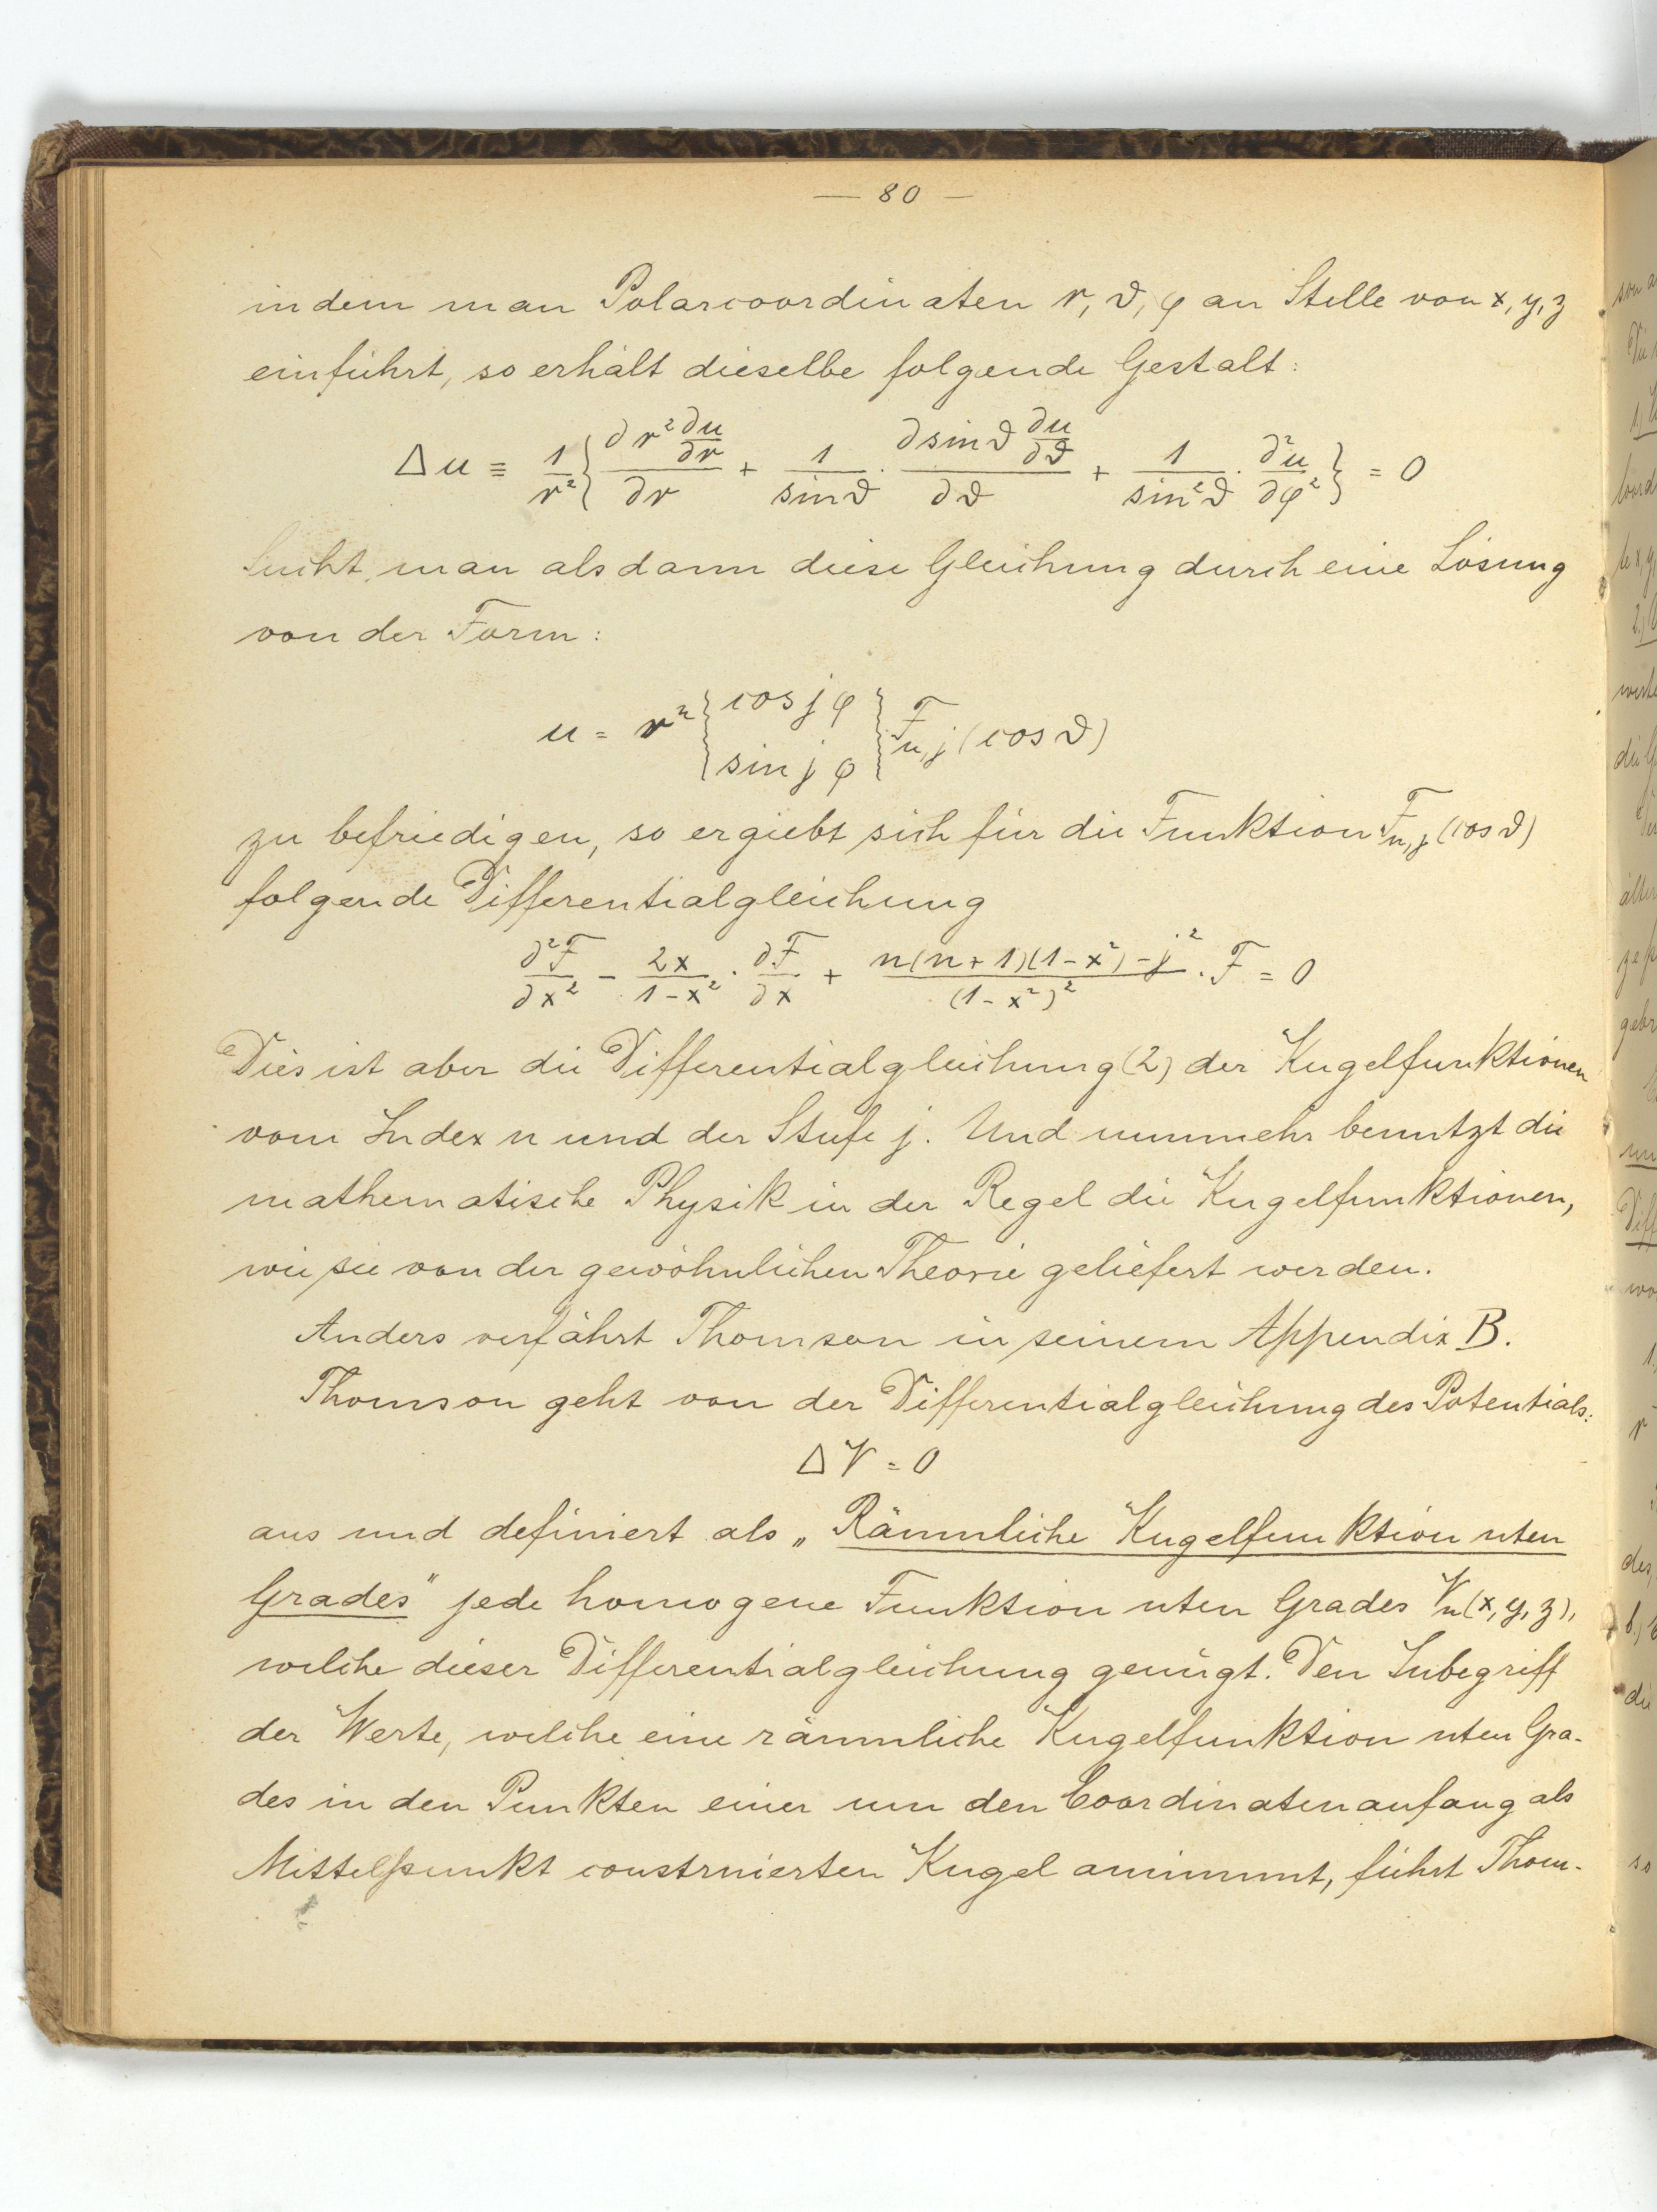 — 80 —
indem man Polarcoordinaten r, ϑ, φ an Stelle von x, y, z
einführt, so erhält dieselbe folgende Gestalt:
Δu ≡ 1/r² { ∂ r² ∂u/∂r / ∂r + 1/sin ϑ · ∂ sin ϑ ∂u/∂ϑ / ∂ϑ + 1/sin² ϑ · ∂²u/∂φ² } = 0
Sucht man alsdann diese Gleichung durch eine Lösung
von der Form:
u = rⁿ { cos jφ / sin jφ } F_{n,j} (cos ϑ)
zu befriedigen, so ergiebt sich für die Funktion F_{n,j} (cos ϑ)
folgende Differentialgleichung
∂²F/∂x² − 2x/1−x² · ∂F/∂x + n(n+1)(1−x²)−j² / (1−x²)² · F = 0
Dies ist aber die Differentialgleichung (2) der Kugelfunktionen
vom Index n und der Stufe j. Und nunmehr benutzt die
mathematische Physik in der Regel die Kugelfunktionen,
wie sie von der gewöhnlichen Theorie geliefert werden.
Anders verfährt Thomson in seinem Appendix B.
Thomson geht von der Differentialgleichung des Potentials:
ΔV = 0
aus und definiert als „Räumliche Kugelfunktion nten
Grades" jede homogene Funktion nten Grades Vₙ(x, y, z),
welche dieser Differentialgleichung genügt. Den Inbegriff
der Werte, welche eine räumliche Kugelfunktion nten Gra-
des in den Punkten einer um den Coordinatenanfang als
Mittelpunkt construierten Kugel annimmt, führt Thom-